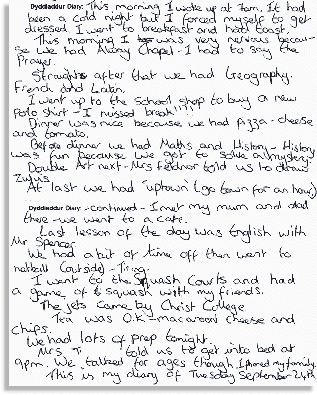 Dyddiaddur Diary: This morning I woke up at 7am. It had
been a cold night but I forced myself to get
dressed. I went to breakfast and had toast.
This morning I was very nervous becau-
se we had Abbey Chapel - I had to say the
Prayer.
Straight after that we had Geography,
French and Latin.
I went up to the school shop to buy a new
Polo shirt - I missed break!!!
Dinner was nice because we had Pizza - cheese
and tomato.
Before dinner we had Maths and History - History
was fun because we got to solve a mystery.
Double Art next - Mrs told us to draw
zulus
At last we had uptown (go town for an hour)
Dyddiaddur Diary: -continued- I met my mum and dad
there - we went to a cafe.
Last lesson of the day was English with
Mr Spencer.
We had a bit of time off then went to
netball (outside) - Tiring.
I went to the Squash Courts and had
a game of squash with my friends.
The jets came by Christ College
Tea was O.K - macaroni cheese and
chips.
We had lots of prep tonight.
Mrs T told us to get into bed at
9pm. We talked for ages though. I phoned my family.
This is my diary of Tuesday September 24th